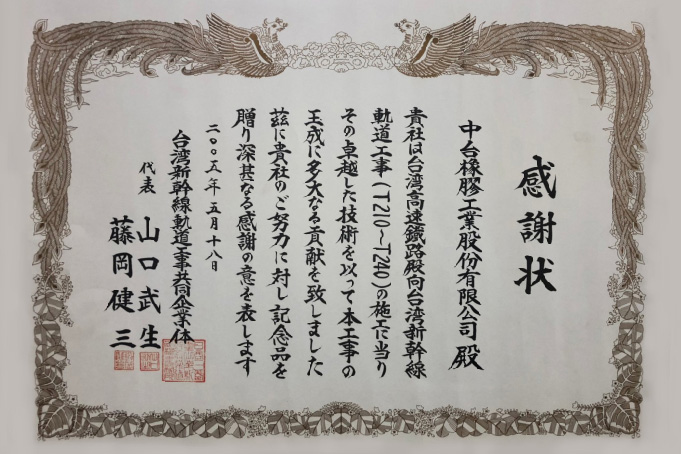 感謝状
中台橡膠工業股份有限公司 殿
貴社は台湾高速鐵路殿向台湾新幹線
軌道工事(T210～T240)の施工に当り
その卓越した技術を以って本工事の
玉成に多大なる貢献を致しました
茲に貴社のご努力に対し記念品を
贈り深甚なる感謝の意を表します
二〇〇五年五月十八日
台湾新幹線軌道工事共同企業体
代表 山口武生
藤岡健三